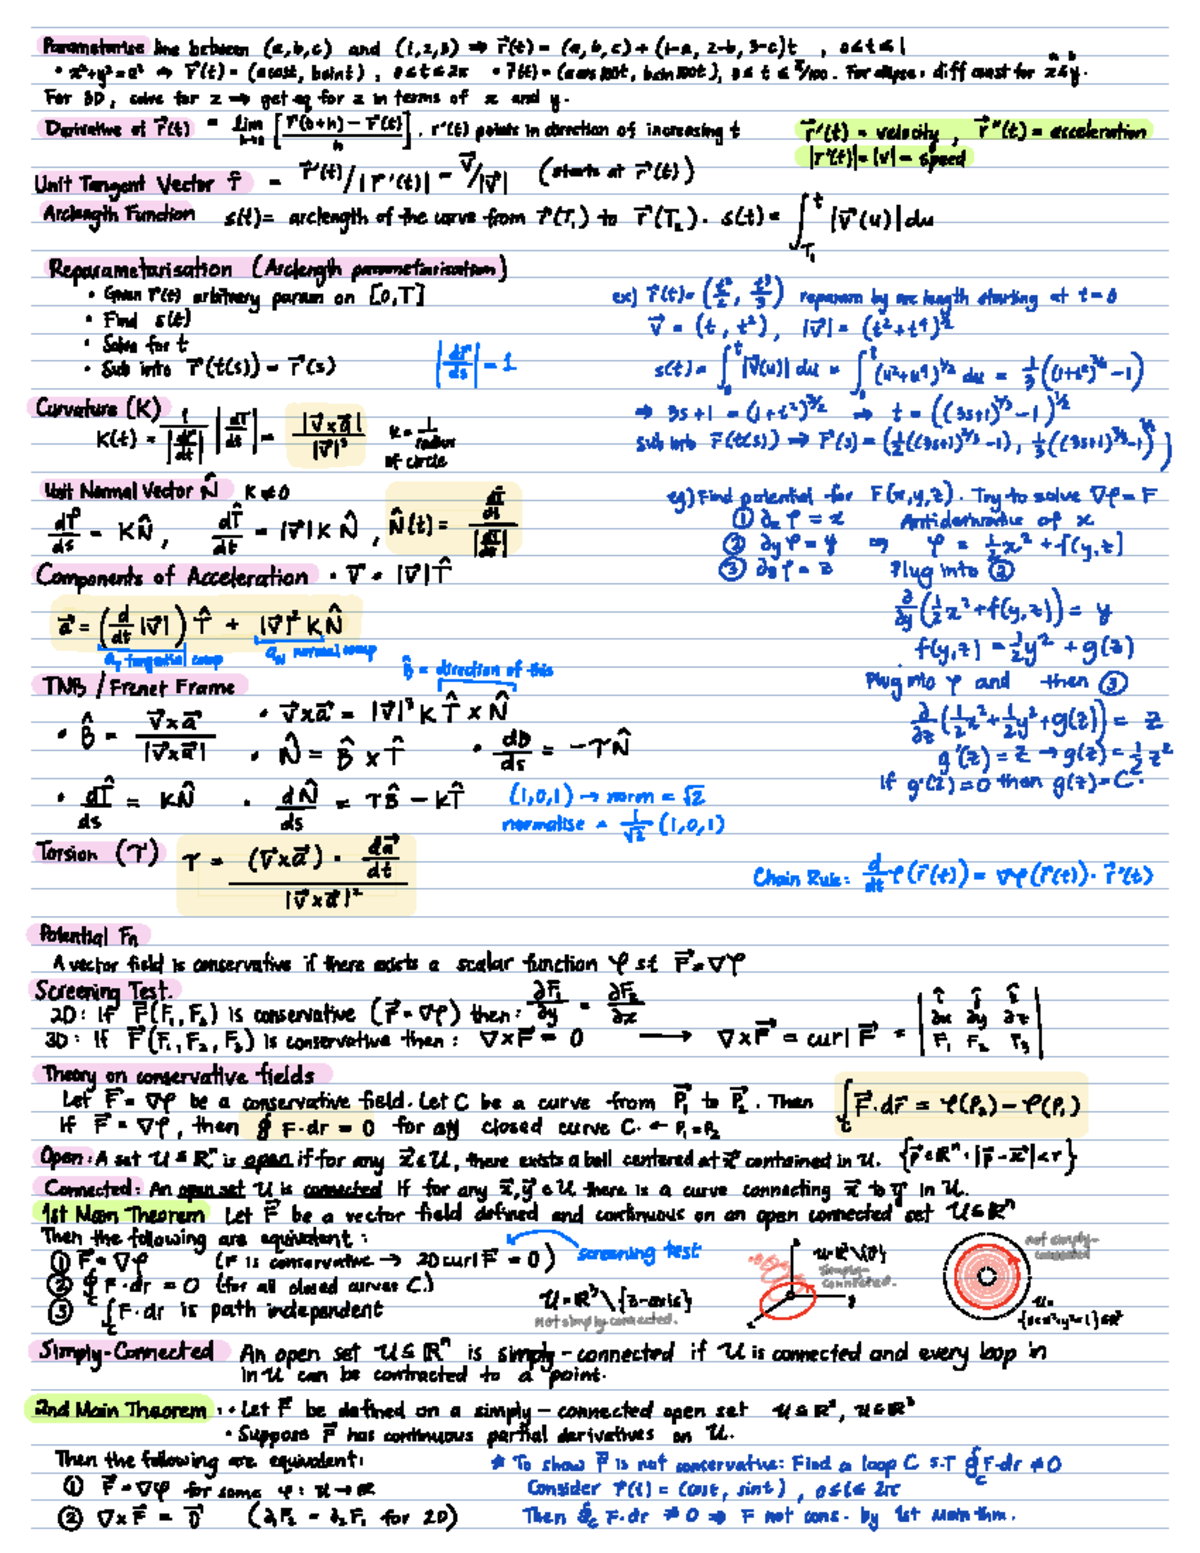 Parameterise line between (a,b,c) and (1,2,3) ⇒ r⃗(t) = (a,b,c) + (1-a, 2-b, 3-c)t , 0≤t≤1
• x²+y²=a² ⇒ r⃗(t) = (acost, bsint), 0≤t≤2π • r⃗(t) = (acos100t, bsin100t), 0≤t≤ /100. For ellipse: diff const for x & y.
For 3D, solve for z → get eq for z in terms of x and y.
Derivative of r⃗(t) = lim h→0 [r⃗(t+h) − r⃗(t) / h]. r'(t) points in direction of increasing t
r⃗'(t) = velocity, r⃗''(t) = acceleration
|r'(t)| = |v| = speed
Unit Tangent Vector T̂ = r⃗'(t)/|r⃗'(t)| = v⃗/|v⃗| (starts at r⃗(t))
Arclength Function s(t) = arclength of the curve from r⃗(T₁) to r⃗(T₂). s(t) = ∫_T₁^t |v⃗(u)| du
Reparametarisation (Arclength parametarisation)
• Given r⃗(t) arbitrary param on [0,T]
• Find s(t)
• Solve for t
• Sub into r⃗(t(s)) = r⃗(s)
|dr⃗/ds| = 1
ex) r⃗(t) = (t²/2, t³/3) reparam by arc length starting at t=0
v⃗ = (t, t²), |v⃗| = (t²+t⁴)^½
s(t) = ∫₀^t |v⃗(u)| du = ∫₀^t (u²+u⁴)^1/2 du = 1/3((1+t²)^3/2 −1)
⇒ 3s+1 = (1+t²)^3/2 ⇒ t = ((3s+1)^2/3 −1)^1/2
sub into r⃗(t(s)) ⇒ r⃗(s) = (½((3s+1)^2/3 −1), ⅓((3s+1)^2/3 −1)^3/2)
Curvature (K)
K(t) = 1/|dr⃗/dt| |dT̂/dt| = |v⃗×a⃗|/|v⃗|³
K = 1/radius of circle
Unit Normal Vector N̂ K≠0
dT̂/ds = KN̂, dT̂/dt = |v⃗|KN̂, N̂(t) = dT̂/dt / |dT̂/dt|
eg) Find potential for F(x,y,z). Try to solve ∇φ = F
① ∂ₓφ = x Antiderivative of x
② ∂yφ = y ⇒ φ = ½x² + f(y,z)
③ ∂zφ = z Plug into ②
∂/∂y(½x² + f(y,z)) = y
f(y,z) = ½y² + g(z)
Plug into φ and then ③
∂/∂z(½x² + ½y² + g(z)) = z
g'(z) = z → g(z) = ½z²
If g'(z)=0 then g(z)=C.
Components of Acceleration • v⃗ = |v⃗|T̂
a⃗ = (d/dt |v⃗|) T̂ + |v⃗|²KN̂
a_T tangential comp a_N normal comp
B̂ = direction of this
TNB / Frenet Frame
• B̂ = v⃗×a⃗/|v⃗×a⃗| • v⃗×a⃗ = |v⃗|³KT̂×N̂
• N̂ = B̂×T̂ • dB̂/ds = −τN̂
• dT̂/ds = KN̂ • dN̂/ds = τB̂ − KT̂
(1,0,1) → norm = √2
normalise = 1/√2 (1,0,1)
Torsion (τ) τ = (v⃗×a⃗)·da⃗/dt / |v⃗×a⃗|²
Chain Rule: d/dt φ(r⃗(t)) = ∇φ(r⃗(t))·r⃗'(t)
Potential Fn
A vector field is conservative if there exists a scalar function φ s.t F⃗ = ∇φ
Screening Test.
2D: If F⃗(F₁,F₂) is conservative (F⃗ = ∇φ) then: ∂F₁/∂y = ∂F₂/∂x
3D: If F⃗(F₁,F₂,F₃) is conservative then: ∇×F⃗ = 0 → ∇×F⃗ = curl F⃗ = | î ĵ k̂ ∂x ∂y ∂z F₁ F₂ F₃ |
Theory on conservative fields
Let F⃗ = ∇φ be a conservative field. Let C be a curve from P⃗₁ to P⃗₂. Then ∫_C F⃗·dr⃗ = φ(P₂) − φ(P₁)
If F⃗ = ∇φ, then ∮ F·dr = 0 for any closed curve C. ← P₁=P₂
Open: A set U⊆ℝⁿ is open if for any x⃗∈U, there exists a ball centered at x⃗ contained in U. {p⃗∈ℝⁿ: |p⃗−x⃗|<r}
Connected: An open set U is connected if for any x⃗,y⃗∈U there is a curve connecting x⃗ to y⃗ in U.
1st Main Theorem Let F⃗ be a vector field defined and continuous on an open connected set U⊆ℝⁿ
Then the following are equivalent:
① F⃗ = ∇φ (F is conservative → 2D curl F⃗ = 0) screening test
② ∮_C F·dr = 0 (for all closed curves C.)
③ ∫_C F·dr is path independent
U=ℝ³\{z-axis}
Not simply connected.
U=ℝ³\{0}
Simply-connected.
not simply-connected
Simply-Connected An open set U⊆ℝⁿ is simply-connected if U is connected and every loop in
in U can be contracted to a point.
2nd Main Theorem: • Let F⃗ be defined on a simply-connected open set U⊆ℝ², U⊆ℝ³
• Suppose F⃗ has continuous partial derivatives on U.
Then the following are equivalent:
① F⃗ = ∇φ for some φ: U→ℝ
② ∇×F⃗ = 0⃗ (∂₁F₂ − ∂₂F₁ for 2D)
* To show F⃗ is not conservative: Find a loop C s.T ∮_C F·dr ≠ 0
Consider r⃗(t) = (cost, sint), 0≤t≤2π
Then ∮_C F·dr ≠ 0 ⇒ F not cons. by 1st main thm.